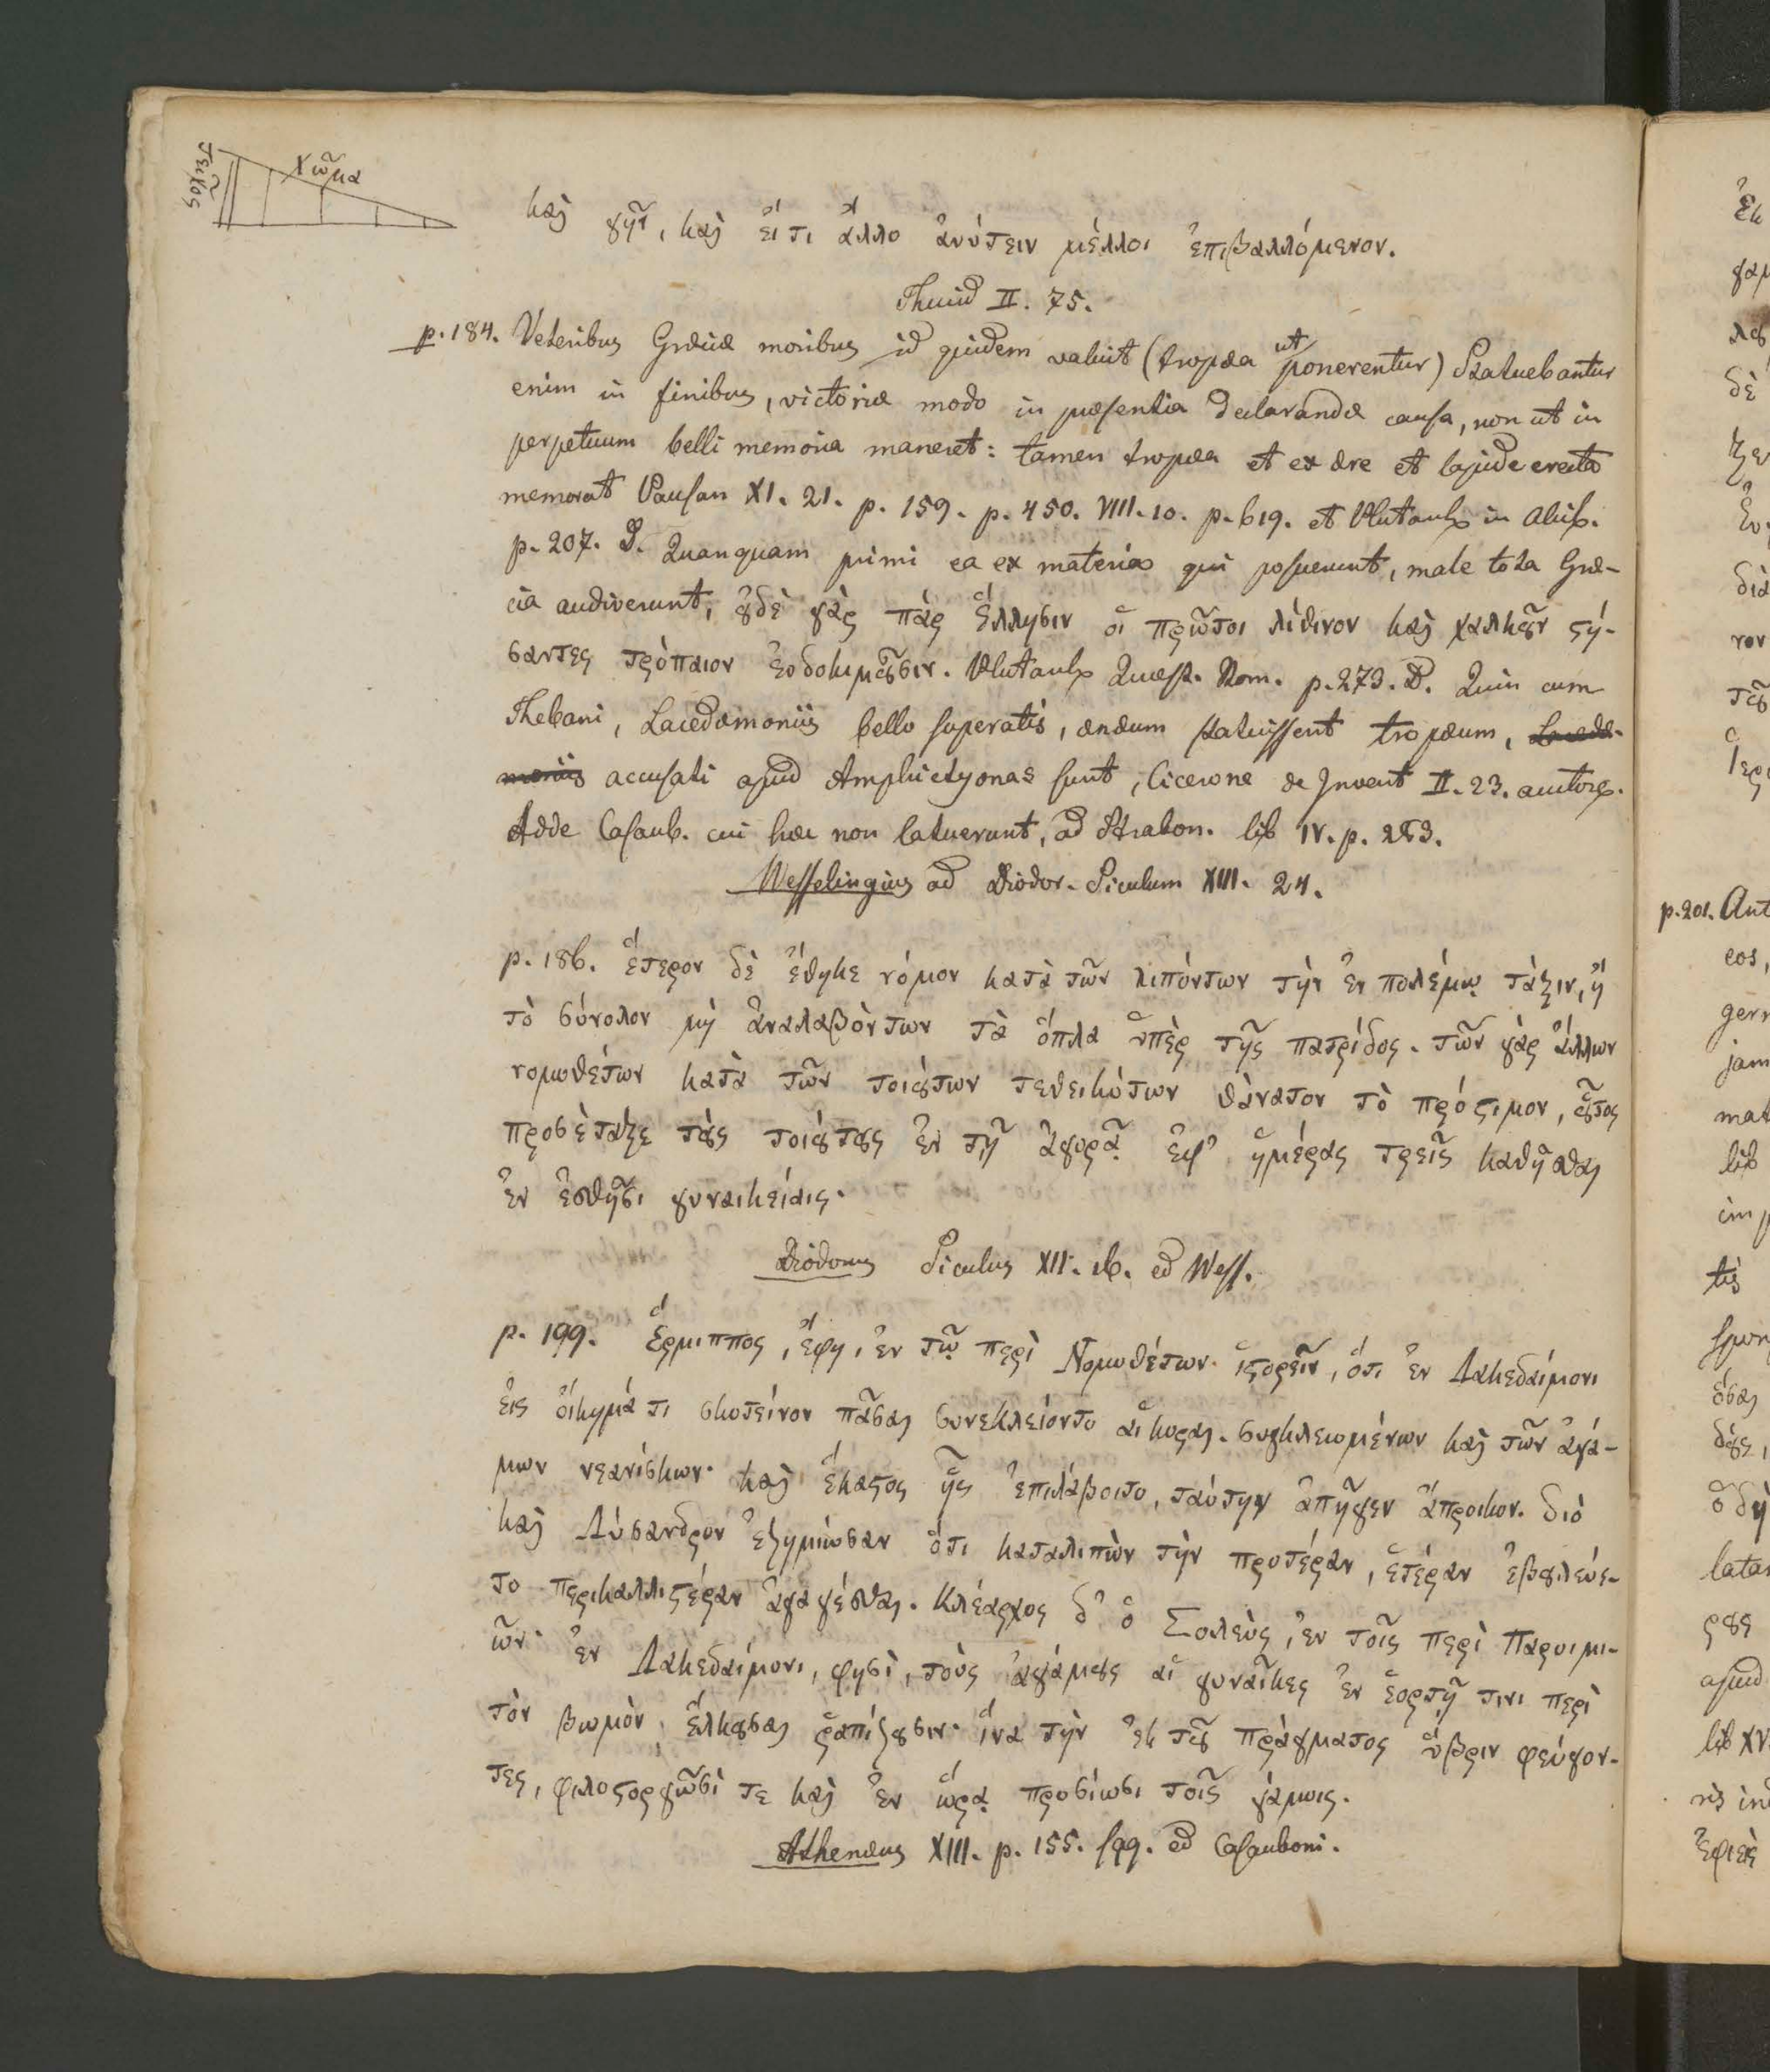 τεῖχος
χῶμα
καὶ γῆν, καὶ ἔι τι ἄλλο ἀνύτειν μέλλοι ἐπιβαλλόμενον.
Thucid II. 75.
p. 184. Veteribus Græciæ moribus id quidem valuit (tropæa ut ponerentur) Statuebantur
enim in finibus, victoriæ modo in præsentia declarandæ causa, non ut in
perpetuum belli memoria maneret: tamen tropæa et ex ære et lapide erecta
memorat Pausan XI. 21. p. 159. p. 450. VIII. 10. p. 619. et Plutarch in Alcib.
p. 207. D. Quanquam primi ea ex materia qui posuerunt, male tota Græ-
cia audiverunt, ȣ̓δὲ γὰρ πὰρ Ἕλλησιν οἱ πρῶτοι λίθινον καὶ χαλκȣ͂ν ϛή-
σαντες τρόπαιον ἐυδοκιμȣ͂σιν. Plutarch Quæst. Rom. p. 273. D. Quin cum
Thebani, Lacedæmoniis bello superatis, æneum statuissent tropæum, Lacedæ-
moniis accusati apud Amphictyonas sunt, Cicerone de Invent II. 23. auctore.
Adde Casaub. cui hæc non latuerunt, ad Strabon. lib IV. p. 283.
Wesselingius ad Diodor. Siculum XIII. 24.
p. 186. ἕτερον δὲ ἔθηκε νόμον κατὰ τῶν λιπόντων τὴν ἐν πολέμῳ τάξιν, ἢ
τὸ σύνολον μὴ ἀναλαβὸντων τὰ ὅπλα ὑπὲρ τῆς πατρίδος. τῶν γὰρ ἄλλων
νομοθέτων κατὰ τῶν τοιȣ́των τεθεικότων θάνατον τὸ πρόϛιμον, ȣ̔͂τος
προσέταξε τȣ̀ς τοιȣ́τȣς ἐν τῇ ἀγορᾷ ἐφ᾽ ἡμέρας τρεῖς καθῆσθαι
ἐν ἐσθῆσι γυναικείαις.
Diodorus Siculus XII. 16. ed Wess.
p. 199. Ἕρμιππος, ἔφη, ἐν τῷ περὶ Νομοθέτων. ἱϛορεῖν, ὅτι ἐν Λακεδαίμονι
ἐις ὄικημά τι σκοτείνον πᾶσαι συνεκλείοντο αἱ κοραι. συγκλειομένων καὶ τῶν ἀγά-
μων νεανίσκων. καὶ ἕκαϛος ἧς ἐπιλάβοιτο, ταύτην ἀπῆγεν ἄπροικον. διὸ
καὶ Λύσανδρον ἐζημίωσαν ὅτι καταλιπὼν τὴν προτέραν, ἑτέραν ἐβȣλεύε-
το περικαλλιϛέραν ἀγαγέσθαι. Κλέαρχος δ᾽ ὁ Σολεὺς, ἐν τοῖς περὶ Παροιμι-
ῶν. ἐν Λακεδαίμονι, φησὶ, τοὺς ἀγάμȣς αἱ γυναῖκες ἐν ἑορτῇ τινι περὶ
τὸν βωμὸν, ἕλκȣσαι ῥαπίζȣσιν. ἵνα τὴν ἐκ τȣ͂ πράγματος ὕβριν φεύγον-
τες, φιλοϛοργῶσὶ τε καὶ ἐν ὥρᾳ προσίωσι τοῖς γάμοις.
Athenæus XIII. p. 155. sqq. ed Casauboni.
p. 201. Ant